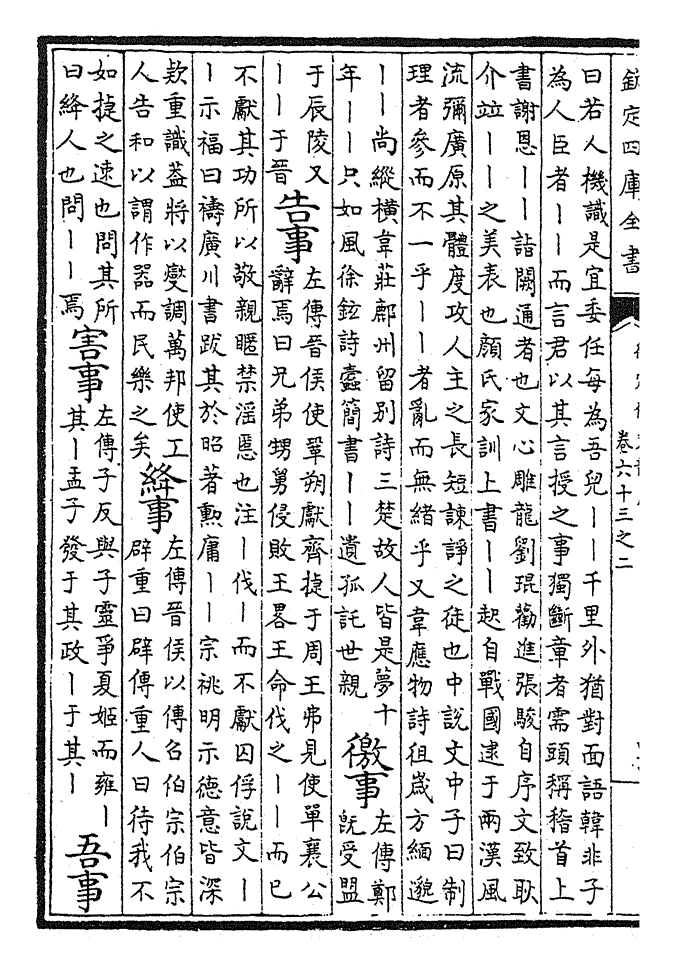 欽定四庫全書
卷六十三之二
曰若人機識是宜委任每為吾兒丨丨千里外猶對面語韓非子
為人臣者丨丨而言君以其言授之事獨斷章者需頭稱稽首上
書謝恩丨丨詣闕通者也文心雕龍劉琨勸進張駿自序文致耿
介竝丨丨之美表也顏氏家訓上書丨丨起自戰國逮于兩漢風
流彌廣原其體度攻人主之長短諫諍之徒也中說文中子曰制
理者參而不一乎丨丨者亂而無緒乎又韋應物詩徂歲方緬邈
丨丨尚縱橫韋莊鄜州留別詩三楚故人皆是夢十
年丨丨只如風徐鉉詩蠹簡書丨丨遺孤託世親
徼事
左傳鄭
既受盟
于辰陵又
丨丨于晉
告事
左傳晉侯使鞏朔獻齊捷于周王弗見使單襄公
辭焉曰兄弟甥舅侵敗王畧王命伐之丨丨而已
不獻其功所以敬親暱禁淫慝也注丨伐丨而不獻囚俘說文丨
丨示福曰禱廣川書跋其於昭著勲庸丨丨宗祧明示德意皆深
欵重識蓋將以燮調萬邦使工
人告和以謂作器而民樂之矣
絳事
左傳晉侯以傳召伯宗伯宗
辟重曰辟傳重人曰待我不
如捷之速也問其所
曰絳人也問丨丨焉
害事
左傳子反與子靈爭夏姬而雍丨
其丨孟子發于其政丨于其丨
吾事